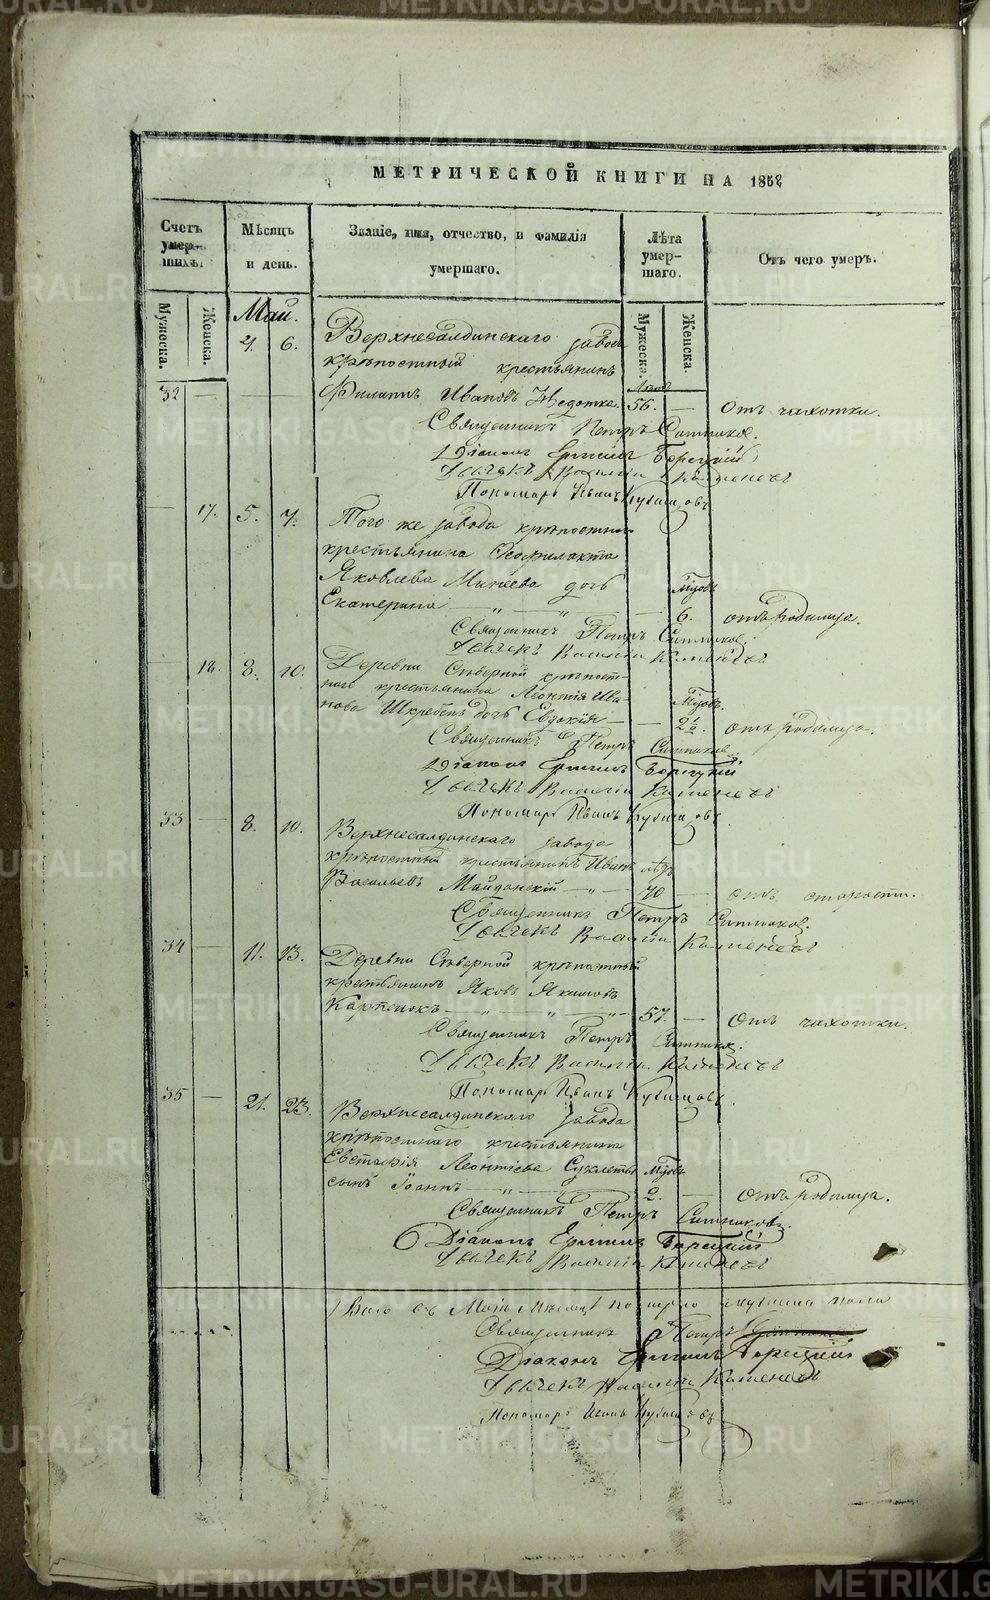 МЕТРИЧЕСКОЙ КНИГИ НА 1852
Счетъ умершихъ.
Мѣсяцъ и день.
Званіе, имя, отчество, и фамилія умершаго.
Лѣта умершаго.
Отъ чего умеръ.
Мужеска.
Женска.
Май.
Мужеска.
Женска.
4. 6. Верхнесалдинскаго завода
крѣпостный крестьянинъ
32 — Филиппъ Ивановъ 56. — Отъ чахотки.
Священникъ Петръ Ситниковъ.
Діаконъ Ермилъ Борецкій
Дьячекъ Василій Каменевъ
Пономарь Иванъ
— 17. 5. 7. Того же завода крѣпостнаго
крестьянина Феофилакта
Яковлева Минеева дочь
Екатерина — 6. отъ родимца.
Священникъ Петръ Ситниковъ.
Дьячекъ Василій Каменевъ
— 18. 8. 10. Деревни Сѣверной крѣпост-
наго крестьянина Леонтія Ива
нова дочь Евдокія — — 2½. отъ родимца.
Священникъ Петръ Ситниковъ.
Діаконъ Ермилъ Борецкій
Дьячекъ Василій Каменевъ
Пономарь Иванъ
33 — 8. 10. Верхнесалдинскаго завода
крѣпостный крестьянинъ Иванъ
Васильевъ Майданскій — 70 — отъ старости.
Священникъ Петръ Ситниковъ.
Дьячекъ Василій Каменевъ
34 — 11. 13. Деревни Сѣверной крѣпостный
крестьянинъ Яковъ Якимовъ
57. — Отъ чахотки.
Священникъ Петръ Ситниковъ.
Дьячекъ Василій Каменевъ
Пономарь Иванъ
35 — 21. 23. Верхнесалдинскаго завода
крѣпостнаго крестьянина
Евстафія Леонтіева
сынъ Іоаннъ — 2. — отъ родимца.
Священникъ Петръ Ситниковъ.
Діаконъ Ермилъ Борецкій
Дьячекъ Василій Каменевъ
Всего въ Маѣ мѣсяцѣ померло мужеска пола
Священникъ Петръ Ситниковъ
Діаконъ Ермилъ Борецкій
Дьячекъ Василій Каменевъ
Пономарь Иванъ
METRIKI.GASO-URAL.RU